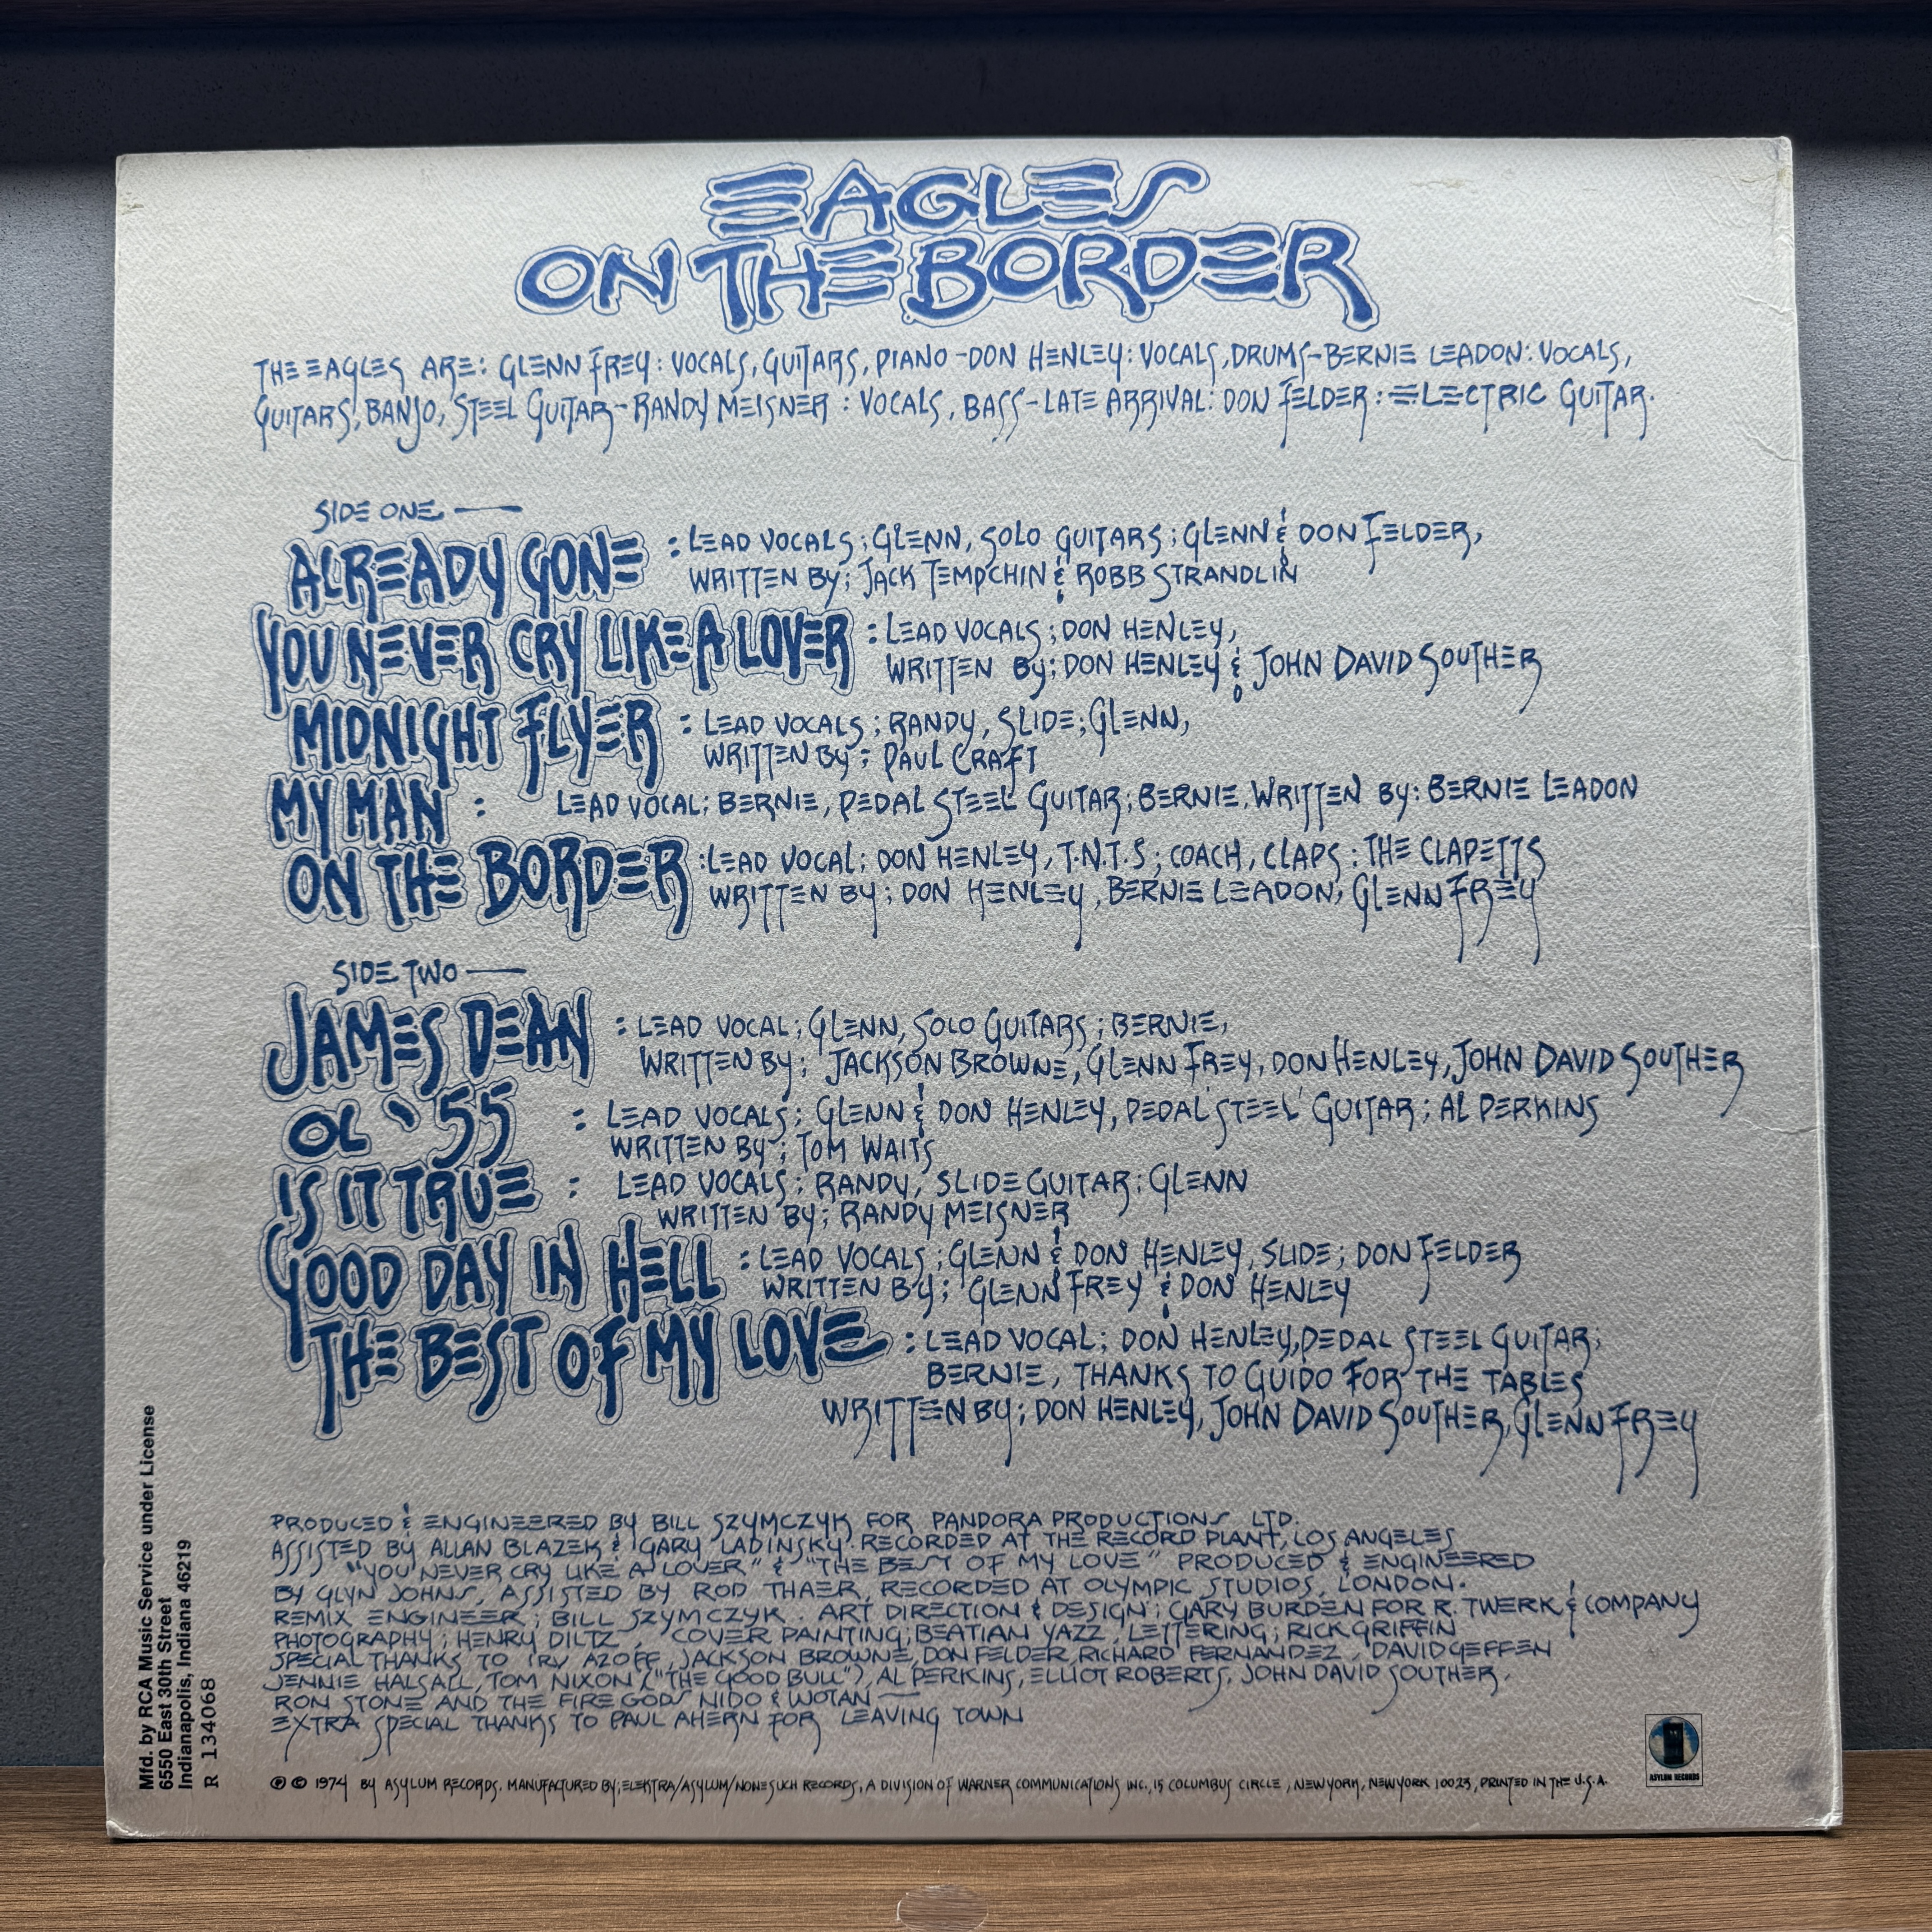 EAGLES
ON THE BORDER
THE EAGLES ARE: GLENN FREY: VOCALS, GUITARS, PIANO - DON HENLEY: VOCALS, DRUMS - BERNIE LEADON: VOCALS,
GUITARS, BANJO, STEEL GUITAR - RANDY MEISNER: VOCALS, BASS - LATE ARRIVAL: DON FELDER: ELECTRIC GUITAR.
SIDE ONE —
ALREADY GONE : LEAD VOCALS; GLENN, SOLO GUITARS; GLENN & DON FELDER,
WRITTEN BY; JACK TEMPCHIN & ROBB STRANDLIN
YOU NEVER CRY LIKE A LOVER : LEAD VOCALS; DON HENLEY,
WRITTEN BY; DON HENLEY & JOHN DAVID SOUTHER
MIDNIGHT FLYER : LEAD VOCALS; RANDY, SLIDE; GLENN,
WRITTEN BY; PAUL CRAFT
MY MAN : LEAD VOCAL; BERNIE, PEDAL STEEL GUITAR; BERNIE, WRITTEN BY: BERNIE LEADON
ON THE BORDER : LEAD VOCAL; DON HENLEY, T.N.T.S; COACH, CLAPS; THE CLAPETTS
WRITTEN BY; DON HENLEY, BERNIE LEADON, GLENN FREY
SIDE TWO —
JAMES DEAN : LEAD VOCAL; GLENN, SOLO GUITARS; BERNIE,
WRITTEN BY; JACKSON BROWNE, GLENN FREY, DON HENLEY, JOHN DAVID SOUTHER
OL '55 : LEAD VOCALS; GLENN & DON HENLEY, PEDAL STEEL GUITAR; AL PERKINS
WRITTEN BY; TOM WAITS
IS IT TRUE : LEAD VOCALS; RANDY, SLIDE GUITAR; GLENN
WRITTEN BY; RANDY MEISNER
GOOD DAY IN HELL : LEAD VOCALS; GLENN & DON HENLEY, SLIDE; DON FELDER
WRITTEN BY; GLENN FREY & DON HENLEY
THE BEST OF MY LOVE : LEAD VOCAL; DON HENLEY, PEDAL STEEL GUITAR;
BERNIE, THANKS TO GUIDO FOR THE TABLES
WRITTEN BY; DON HENLEY, JOHN DAVID SOUTHER, GLENN FREY
PRODUCED & ENGINEERED BY BILL SZYMCZYK FOR PANDORA PRODUCTIONS LTD.
ASSISTED BY ALLAN BLAZEK & GARY LADINSKY. RECORDED AT THE RECORD PLANT, LOS ANGELES
"YOU NEVER CRY LIKE A LOVER" & "THE BEST OF MY LOVE" PRODUCED & ENGINEERED
BY GLYN JOHNS, ASSISTED BY ROD THAER, RECORDED AT OLYMPIC STUDIOS, LONDON.
REMIX ENGINEER; BILL SZYMCZYK. ART DIRECTION & DESIGN; GARY BURDEN FOR R. TWERK & COMPANY
PHOTOGRAPHY; HENRY DILTZ, COVER PAINTING; BEATIAN YAZZ, LETTERING; RICK GRIFFIN
SPECIAL THANKS TO IRV AZOFF, JACKSON BROWNE, DON FELDER, RICHARD FERNANDEZ, DAVID GEFFEN
JENNIE HALSALL, TOM NIXON ("THE GOOD BULL"), AL PERKINS, ELLIOT ROBERTS, JOHN DAVID SOUTHER,
RON STONE AND THE FIRE GODS NIDO & WOTAN —
EXTRA SPECIAL THANKS TO PAUL AHERN FOR LEAVING TOWN
℗ © 1974 BY ASYLUM RECORDS. MANUFACTURED BY; ELEKTRA/ASYLUM/NONESUCH RECORDS, A DIVISION OF WARNER COMMUNICATIONS INC., 15 COLUMBUS CIRCLE, NEW YORK, NEW YORK 10023, PRINTED IN THE U.S.A.
ASYLUM RECORDS
Mfd. by RCA Music Service under License
6550 East 30th Street
Indianapolis, Indiana 46219
R 134068